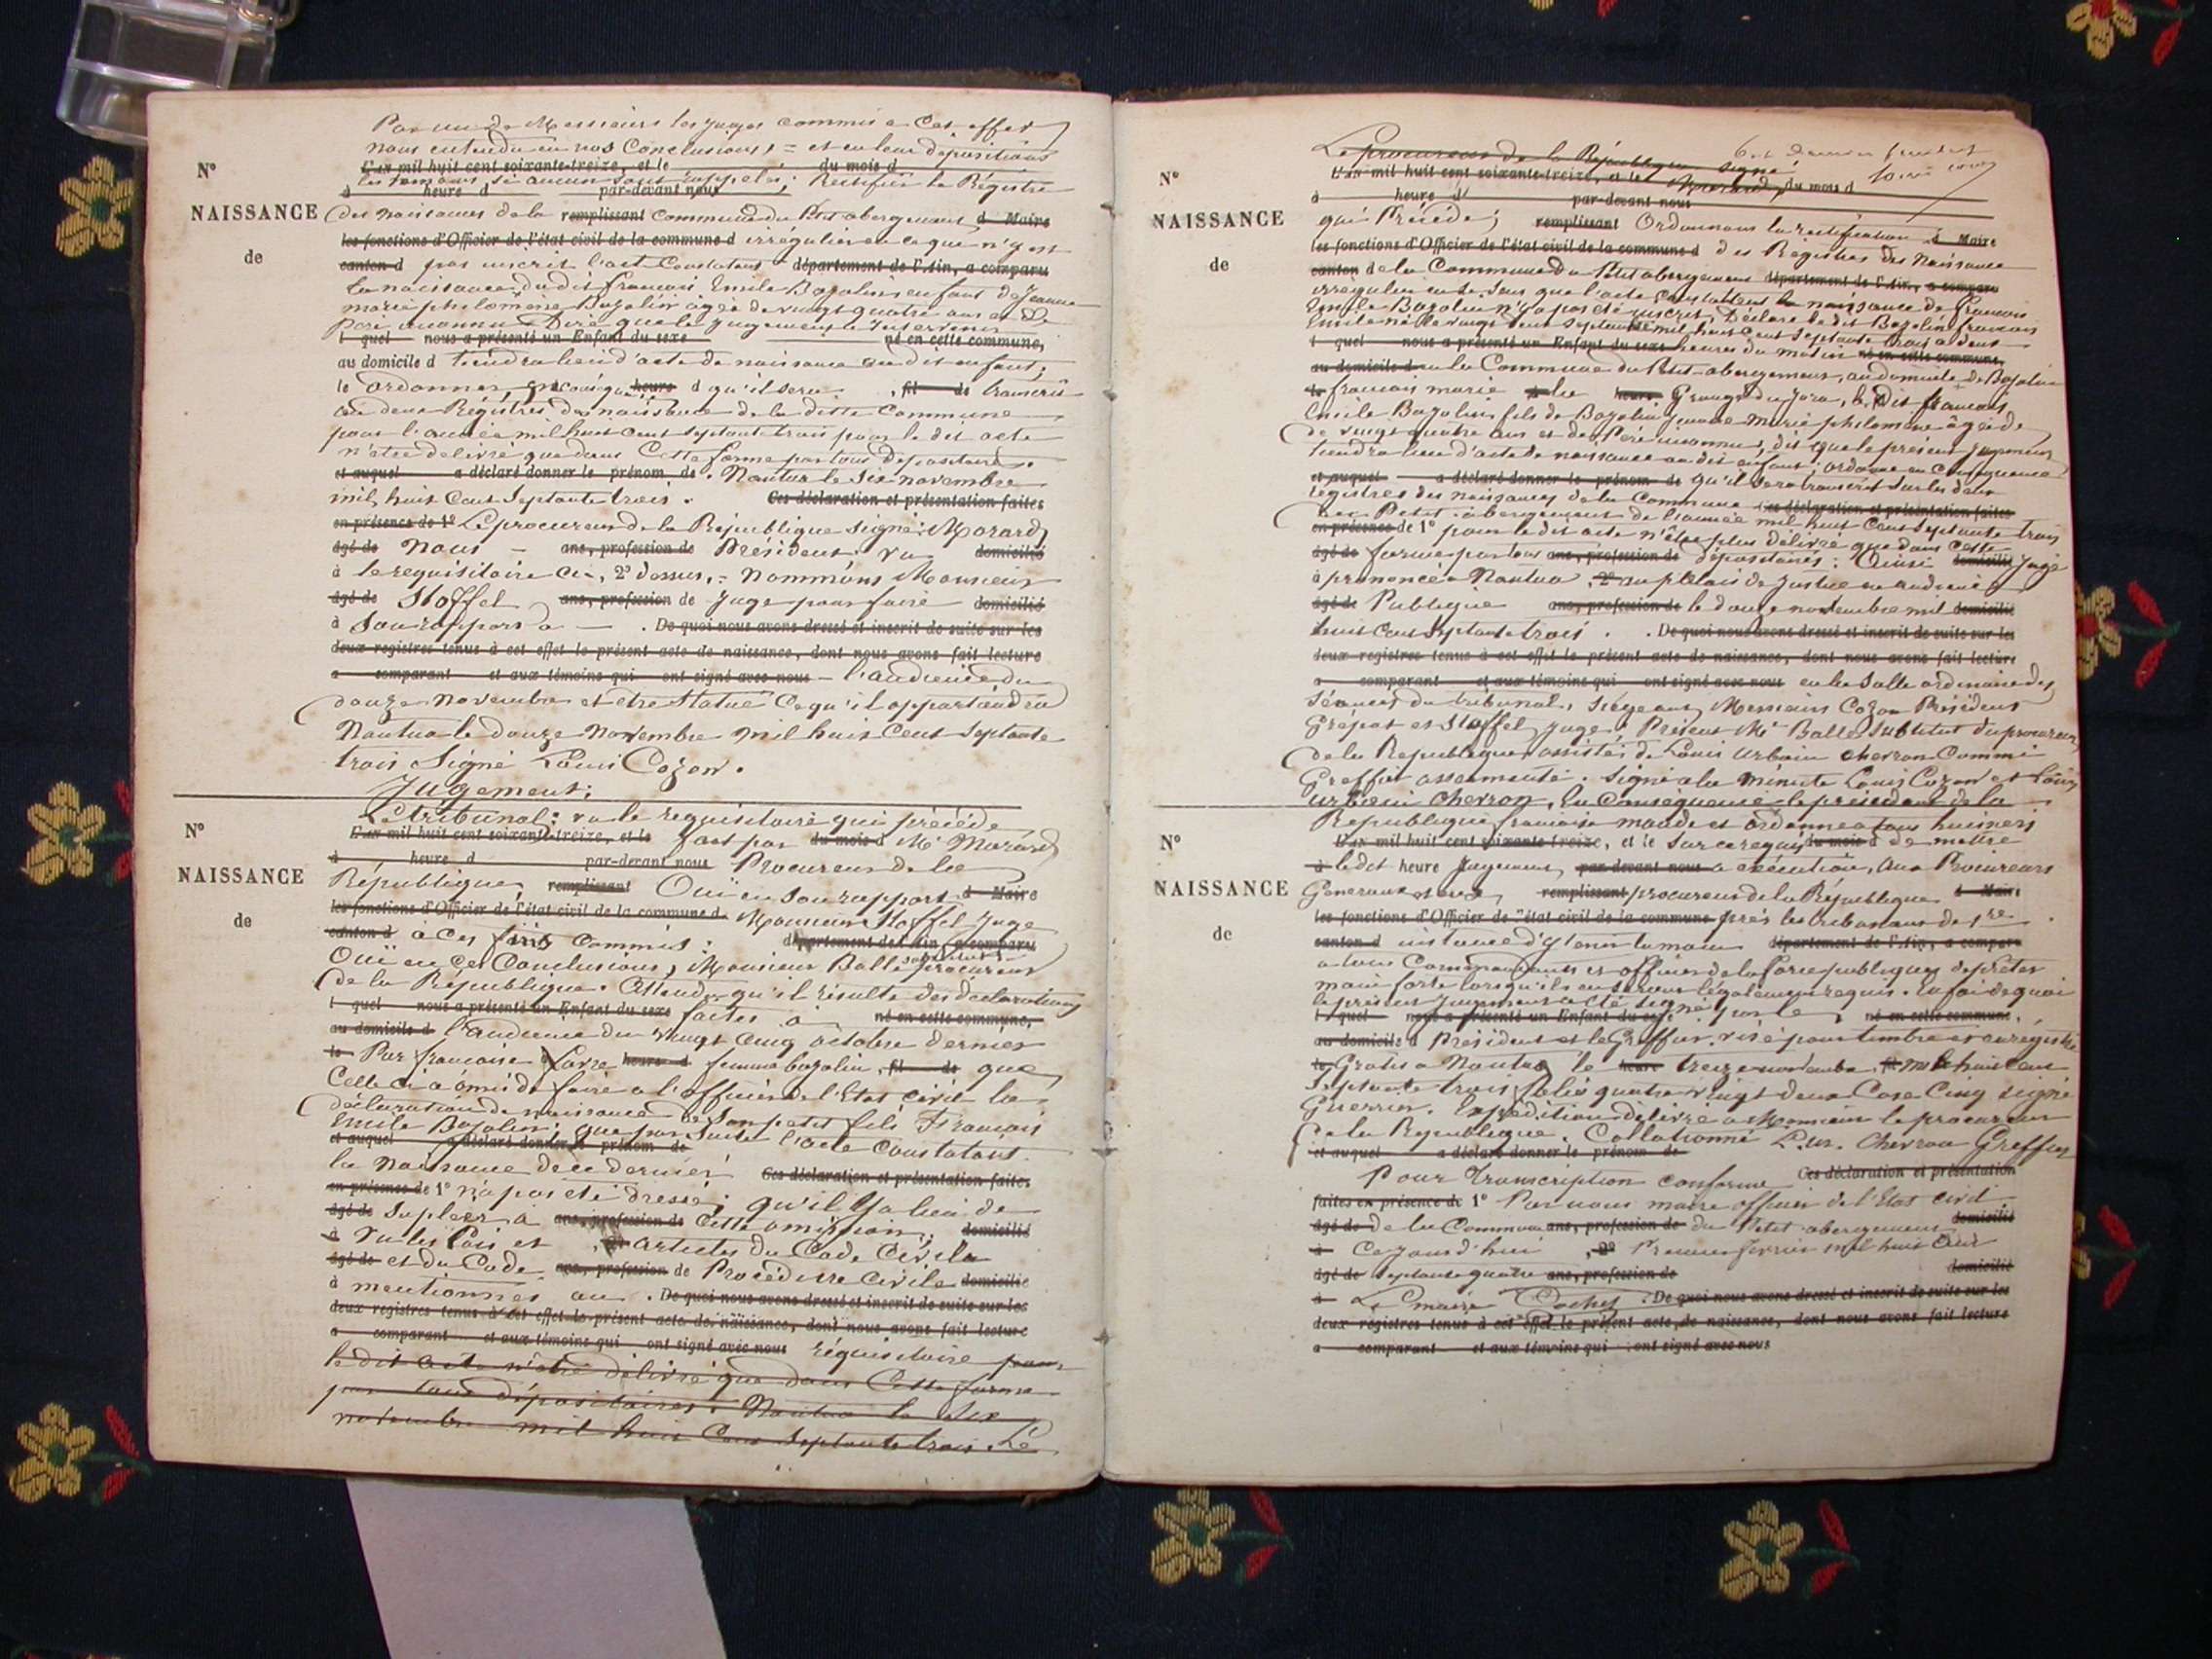 Par un de Messieurs les juges commis a cet effet
nous entendu en nos Conclusions, = et en leur dépositions
L'an mil huit cent soixante-treize, et le du mois d
les temoins si aucun sont appelés; Rectifier le Régistre
à heure d par-devant nous
N°
NAISSANCE
de
des naissances de la remplissant Commune du Petit abergement d Maire
les fonctions d'Officier de l'état civil de la commune d irrégulier en ce que n'y est
canton d pas inscrit l'acte Constatant département de l'Ain, a comparu
la naissance du dit françois Emile Bozolin enfant de Jeanne
marie philomène Bozolin âgée de vingt quatre ans et de
père inconnu Dire que le jugement a intervenir
l quel nous a présenté un Enfant du sexe né en cette commune,
au domicile d tiendra lieu d'acte de naissance au dit enfant;
le ordonner, en conséqu heure d qu'il sera , fil de transcrit
au deux Régistres des naissance de la ditte Commune
pour l'année mil huit cent septante trois pour le dit acte
n'être délivré que dans Cette forme par tous dépositaires.
et auquel a déclaré donner le prénom de Nantua le Six novembre
mil huit Cent Septante trois. Ces déclaration et présentation faites
en présence de 1° Le procureur de la République signé: Morard
âgé de Nous — ans, profession de Président vu domicilié
à le requisitoire ci-, 2° dessus, = Nommons Monsieur
âgé de Stoffel ans, profession de Juge pour faire domicilié
à Son rapport a — . De quoi nous avons dressé et inscrit de suite sur les
deux registres tenus à cet effet le présent acte de naissance, dont nous avons fait lecture
a comparant et aux témoins qui ont signé avec nous — l'audience du
douze novembre et etre Statué Ce qu'il appartiendra
Nantua le douze Novembre mil huit Cent Septante
trois Signé Louis Cozon.
Jugement:
Le tribunal: vu le requisitoire qui précéde
N°
NAISSANCE
de
L'an mil huit cent soixante-treize, et le fait par du mois d Mr Morard
à heure d par-devant nous Procureur de la
République; remplissant Ouï en son rapport d Maire
les fonctions d'Officier de l'état civil de la commune d Monsieur Stoffel Juge
canton d à Ces fins Commis: département de l'Ain, a comparu
Ouï en ces Conclusions, Monsieur Balle substitut procureur
de la République. Attendu qu'il résulte des declarations
l quel nous a présenté un Enfant du sexe faites à né en cette commune,
au domicile d l'audience du vingt Cinq octobre dernier
le Par françoise Favre heure d femme bozolin, fil de que
Celle ci a omis de faire a l'officier de l'Etat civil la
déclaration de naissance de Son petit fils François
Emile Bozolin; que par Suite l'acte Constatant
et auquel a déclaré donner le prénom de
la naissance de ce dernier Ces déclaration et présentation faites
en présence de 1° n'a pas été dressé; qu'il y a lieu de
âgé de supleer à ans, profession de Cette omission, domicilié
à Vu les Lois et , 2° articles du Code Civile
âgé de et du Code ans, profession de Procédure Civile domicilié
à mentionnés au . De quoi nous avons dressé et inscrit de suite sur les
deux registres tenus à cet effet le présent acte de naissance, dont nous avons fait lecture
a comparant et aux témoins qui ont signé avec nous réquisitoire pour
le dit acte n'être délivré que dans Cette forme
par tous dépositaires. Nantua le Six
novembre mil huit Cent Septante trois. Le
Le procureur de la République Signé
L'an mil huit cent soixante-treize, et le Morard, du mois d
à heure d par-devant nous
N°
NAISSANCE
de
qui Précéde; remplissant Ordonnons la rectification d Maire
les fonctions d'Officier de l'état civil de la commune d des Registres des Naissance
canton de la Commune du Petit abergement département de l'Ain, a comparu
irrégulier en ce Sens que l'acte Constatant la naissance de François
Emile Bozolin n'y a pas été inscrit, Déclare le dit Bozolin françois
Emile né le vingt deux Septembre mil huit Cent Septante trois a deux
l quel nous a présenté un Enfant du sexe heures du matin né en cette commune,
au domicile d en la Commune du Petit-abergement, au domicile de Bozolin
le françois marie à la heure Grange du Jora, le dit françois
Emile Bozolin, fils de Bozolin jeanne Marie philomène âgée de
de vingt quatre ans et de Père inconnu, dit que le présent Jugement
tiendra lieu d'acte de naissance au dit enfant; ordonne en Conséquence
et auquel a déclaré donner le prénom de qu'il sera transcrit Sur les deux
registres des naissances de la Commune Ces déclaration et présentation faites
du Petit-abergement de l'année mil huit Cent Septante trois
en présence de 1° pour le dit acte n'être plus délivré que dans Cette
âgé de forme par tous ans, profession de dépositaires; Ainsi domicilié Jugé
à prononcé a Nantua , 2° au palais de Justice en audience
âgé de Publique ans, profession de le douze novembre mil domicilié
huit Cent Septante trois. . De quoi nous avons dressé et inscrit de suite sur les
deux registres tenus à cet effet le présent acte de naissance, dont nous avons fait lecture
a comparant et aux témoins qui ont signé avec nous en la Salle ordinaire des
Séances du tribunal, Siégeant Messieurs Cozon Président
Grépat et Stoffel juges, Présent Mr Balle Substitut du procureur
de la République assistés de Louis Urbain Chevron Commis
Greffier assermenté. Signé a la Minute Louis Cozon et Louis
urbain Chevron, En Conséquence le président de la
République française mande et ordonne a tous huissiers
N°
NAISSANCE
de
L'an mil huit cent soixante-treize, et le Sur ce requis du mois d de mettre
à le dit heure Jugement par-devant nous a exécution, Aux Procureurs
Généraux et aux remplissant procureurs de la République d Maire
les fonctions d'Officier de l'état civil de la commune près les tribunaux de 1re
canton d instance d'y tenir la main département de l'Ain, a comparu
a tous Commandants et officiers de la force publique de prêter
main forte lorsqu'ils en seront légalement requis. En foi de quoi
le présent Jugement a été signé par le
l quel nous a présenté un Enfant du sexe né en cette commune,
au domicile d Président et le Greffier. visé pour timbre et enregistré
le Gratis a Nantua le heure treize novembre fil mil huit Cent
Septante trois folio quatre vingt deux Case Cinq signé
Guerrier. Expédition délivré a Monsieur le procureur
de la République. Collationné L. Ur. Chevron Greffier
et auquel a déclaré donner le prénom de
Pour Transcription conforme Ces déclaration et présentation
faites en présence de 1° Par nous maire officier de l'Etat civil
âgé de de la Commune ans, profession de du Petit abergement domicilié
à Ce jourd'hui , 2° Premier fevrier mil huit Cent
âgé de Septante quatre ans, profession de domicilié
à Le maire Cochet . De quoi nous avons dressé et inscrit de suite sur les
deux registres tenus à cet effet le présent acte de naissance, dont nous avons fait lecture
a comparant et aux témoins qui ont signé avec nous